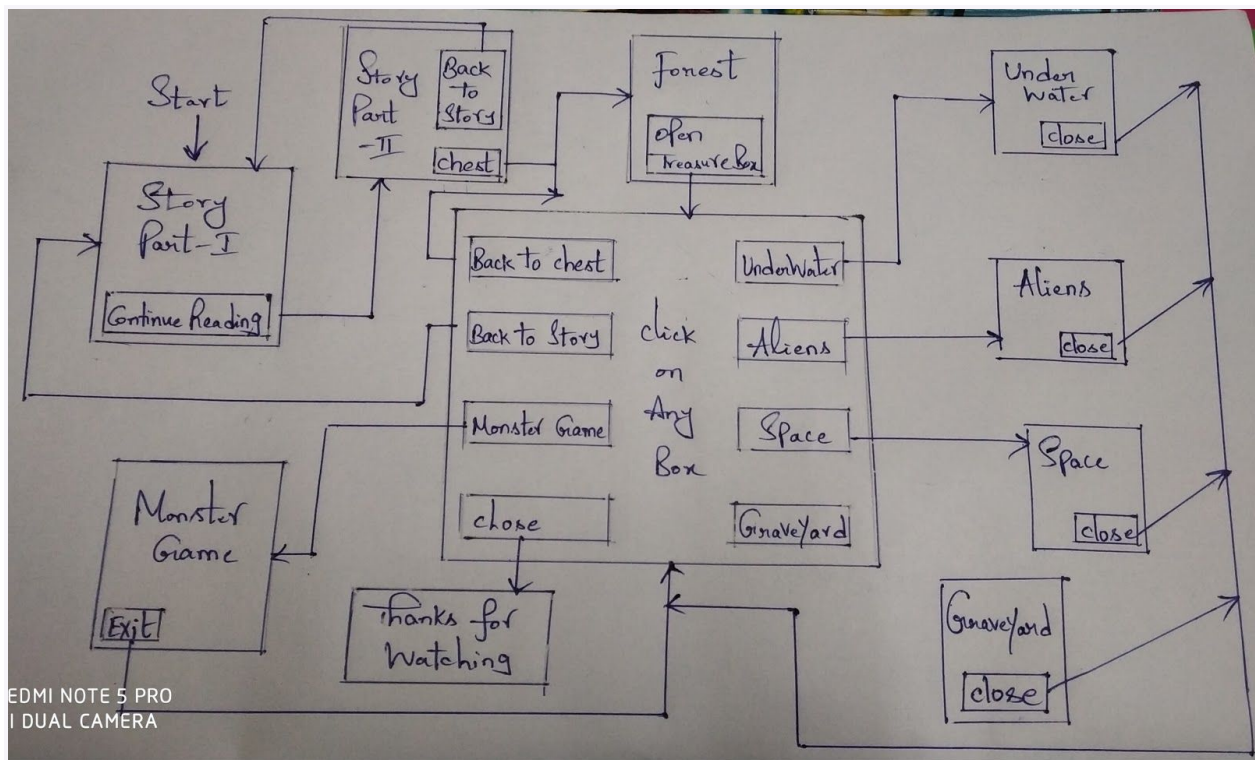 Start
Story
Part-I
Continue Reading
Story
Part
-II
Back
to
Story
chest
Forest
open
treasure Box
Under
Water
close
Back to chest
Back to Story
Monster Game
close
click
on
Any
Box
UnderWater
Aliens
Space
GraveYard
Aliens
close
Space
close
GraveYard
close
Monster
Game
Exit
Thanks for
Watching
EDMI NOTE 5 PRO
I DUAL CAMERA